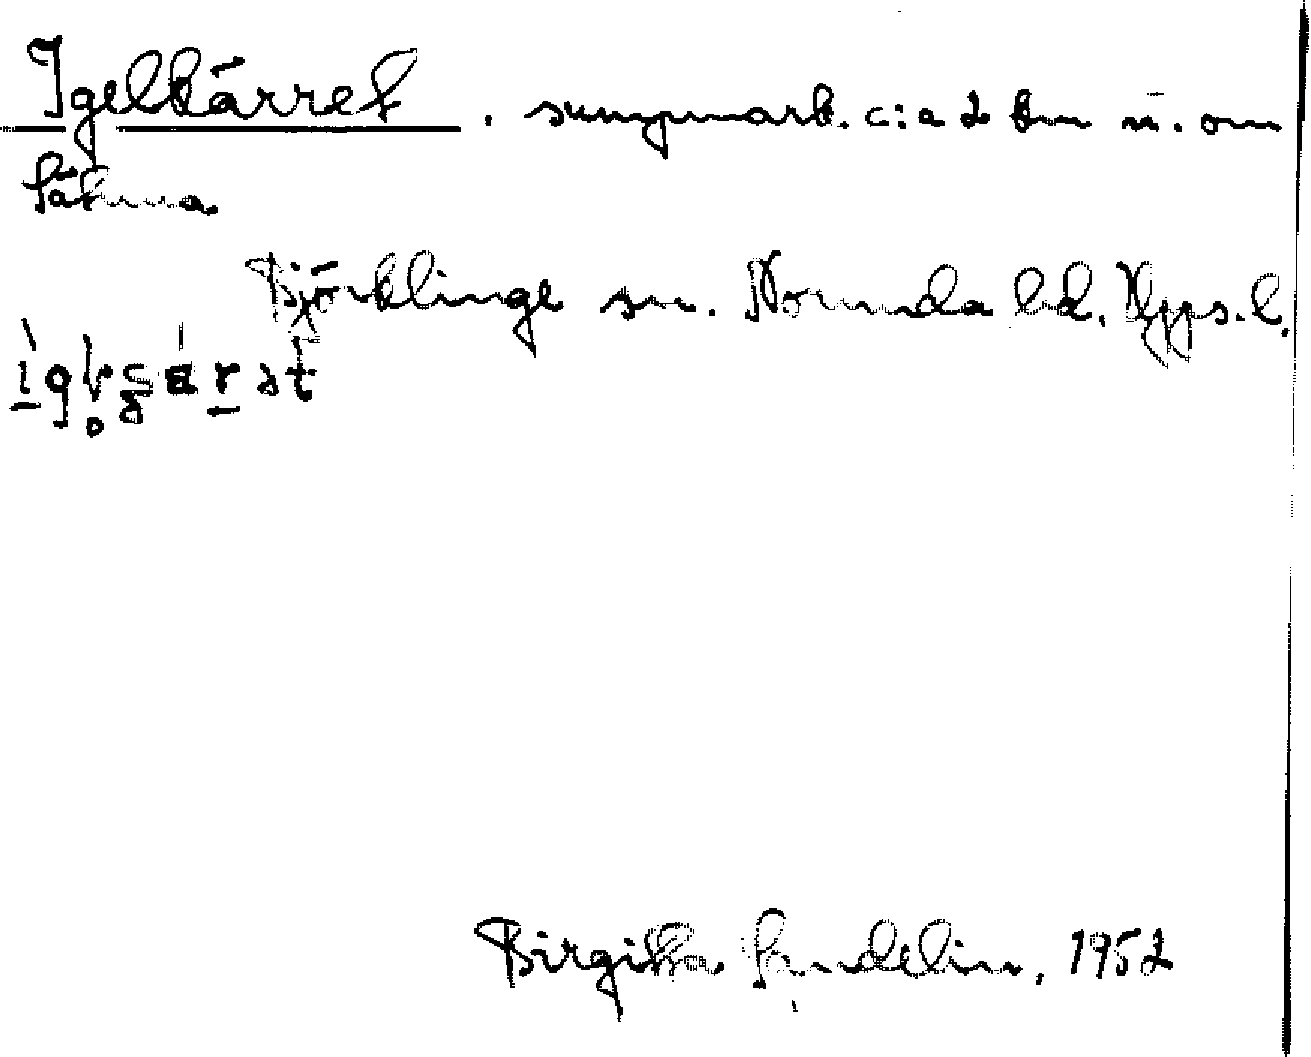 Igelkärret . sumpmark. c:a 2 km n. om
Sätuna
Björklinge sn. Norunda hd. Upps. l.
Birgitta 1952